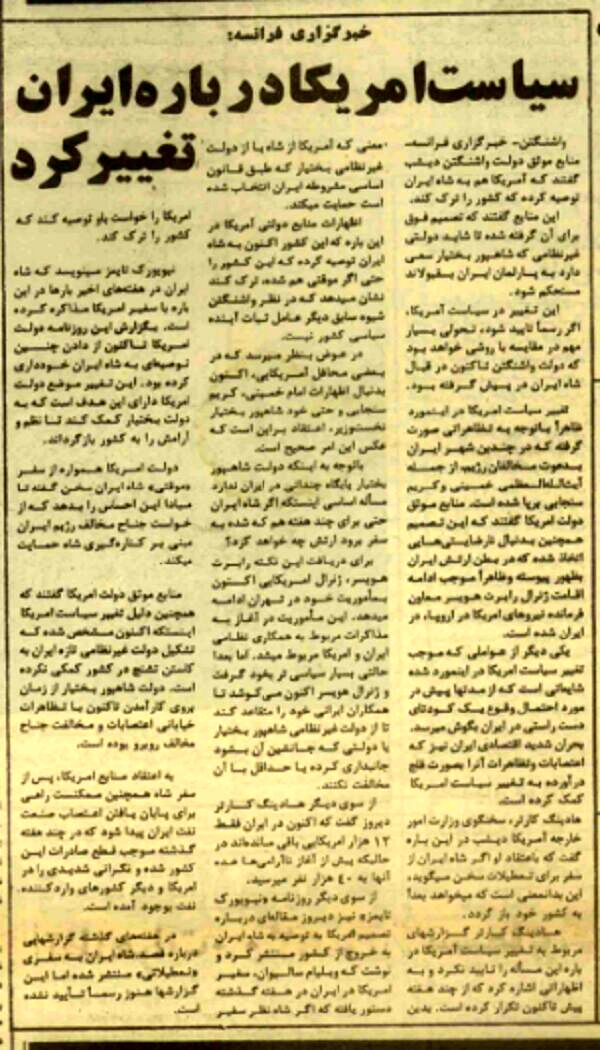 خبرگزاری فرانسه:
سیاست امریکا درباره ایران
تغییر کرد
واشنگتن- خبرگزاری فرانسه-
منابع موثق دولت واشنگتن دیشب
گفتند که آمریکا هم به شاه ایران
توصیه کرده که کشور را ترک کند.
این منابع گفتند که تصمیم فوق
برای آن گرفته شده تا شاید دولتی
غیرنظامی که شاهپور بختیار سعی
دارد به پارلمان ایران بقبولاند
مستحکم شود.
این تغییر در سیاست آمریکا،
اگر رسماً تایید شود، تحولی بسیار
مهم در مقایسه با روشی خواهد بود
که دولت واشنگتن تاکنون در قبال
شاه ایران در پیش گرفته بود.
تغییر سیاست امریکا در اینمورد
ظاهراً باتوجه به تظاهراتی صورت
گرفته که در چندین شهر ایران
بدعوت مخالفان رژیم، از جمله
آیت‌الله‌العظمی خمینی و کریم
سنجابی برپا شده است. منابع موثق
دولت امریکا گفتند که این تصمیم
همچنین بدنبال نارضایتی‌هایی
اتخاذ شده که در بطن ارتش ایران
بظهور پیوسته وظاهراً موجب ادامه
اقامت ژنرال رابرت هویسر معاون
فرمانده نیروهای امریکا در اروپا، در
ایران شده است.
یکی دیگر از عواملی که موجب
تغییر سیاست امریکا در اینمورد شده
شایعاتی است که از مدتها پیش در
مورد احتمال وقوع یک کودتای
دست راستی در ایران بگوش میرسد.
بحران شدید اقتصادی ایران نیز که
اعتصابات وتظاهرات آنرا بصورت فلج
درآورده به تغییر سیاست امریکا
کمک کرده است.
هادینگ کارتر، سخنگوی وزارت امور
خارجه آمریکا دیشب در این باره
گفت که باعتقاد او اگر شاه ایران از
سفر برای تعطیلات سخن میگوید،
این بدانمعنی است که میخواهد بعداً
به کشور خود باز گردد.
هادینگ کارتر گزارشهای
مربوط به تغییر سیاست آمریکا در
باره این مسأله را تایید نکرد و به
اظهاراتی اشاره کرد که از چند هفته
پیش تاکنون تکرار کرده است. بدین
معنی که آمریکا از شاه یا از دولت
غیرنظامی بختیار که طبق قانون
اساسی مشروطه ایران انتخاب شده
است حمایت میکند.
اظهارات منابع دولتی آمریکا در
این باره که این کشور اکنون به شاه
ایران توصیه کرده که این کشور را
حتی اگر موقتی هم شده، ترک کند
نشان میدهد که در نظر واشنگتن
شیوه سابق دیگر عامل ثبات آینده
سیاسی کشور نیست.
در عوض بنظر میرسد که در
بعضی محافل آمریکایی، اکنون
بدنبال اظهارات امام خمینی، کریم
سنجابی و حتی خود شاهپور بختیار
نخست‌وزیر، اعتقاد براین است که
عکس این امر صحیح است.
باتوجه به اینکه دولت شاهپور
بختیار پایگاه چندانی در ایران ندارد
مسأله اساسی اینستکه اگر شاه ایران
حتی برای چند هفته هم که شده به
سفر برود ارتش چه خواهد کرد؟
برای دریافت این نکته رابرت
هویسر، ژنرال امریکایی اکنون
بمأموریت خود در تهران ادامه
میدهد. این مأموریت در آغاز به
مذاکرات مربوط به همکاری نظامی
ایران و امریکا مربوط میشد. اما بعداً
حالتی بسیار سیاسی تر بخود گرفت
و ژنرال هویسر اکنون می‌کوشد تا
همکاران ایرانی خود را متقاعد کند
تا از دولت غیرنظامی شاهپور بختیار
یا دولتی که جانشین آن بشود
جانبداری کرده یا حداقل با آن
مخالفت نکنند.
از سوی دیگر هادینگ کارتر
دیروز گفت که اکنون در ایران فقط
۱۲ هزار امریکایی باقی مانده‌اند در
حالیکه پیش از آغاز ناآرامی‌ها عده
آنها به ۴۰ هزار نفر میرسید.
از سوی دیگر روزنامه «نیویورک
تایمز» نیز دیروز مقاله‌ای درباره
تصمیم امریکا به توصیه به شاه ایران
به خروج از کشور منتشر کرد و
نوشت که ویلیام سالیوان، سفیر
امریکا در ایران در هفته گذشته
دستور یافته که اگر شاه نظر سفیر
امریکا را خواست باو توصیه کند که
کشور را ترک کند.
نیویورک تایمز مینویسد که شاه
ایران در هفته‌های اخیر بارها در این
باره با سفیر امریکا مذاکره کرده
است. بگزارش این روزنامه دولت
امریکا تاکنون از دادن چنین
توصیه‌ای به شاه ایران خودداری
کرده بود. این تغییر موضع دولت
امریکا دارای این هدف است که به
دولت بختیار کمک کند تا نظم و
آرامش را به کشور بازگرداند.
دولت امریکا همواره از سفر
«موقتی» شاه ایران سخن گفته تا
مبادا این احساس را بدهد که از
خواست جناح مخالف رژیم ایران
مبنی بر کناره‌گیری شاه حمایت
میکند.
منابع موثق دولت امریکا گفتند که
همچنین دلیل تغییر سیاست امریکا
اینستکه اکنون مشخص شده که
تشکیل دولت غیرنظامی تازه ایران به
کاستن تشنج در کشور کمکی نکرده
است. دولت شاهپور بختیار از زمان
بروی کارآمدن تاکنون با تظاهرات
خیابانی اعتصابات و مخالفت جناح
مخالف روبرو بوده است.
به اعتقاد منابع امریکا، پس از
سفر شاه همچنین ممکنست راهی
برای پایان یافتن اعتصاب صنعت
نفت ایران پیدا شود که در چند هفته
گذشته موجب قطع صادرات این
کشور شده و نگرانی شدیدی را در
امریکا و دیگر کشورهای واردکننده
نفت بوجود آمده است.
در هفته‌های گذشته گزارشهایی
درباره قصد شاه ایران به سفری
«تعطیلاتی» منتشر شده اما این
گزارشها هنوز رسماً تأیید نشده
است.